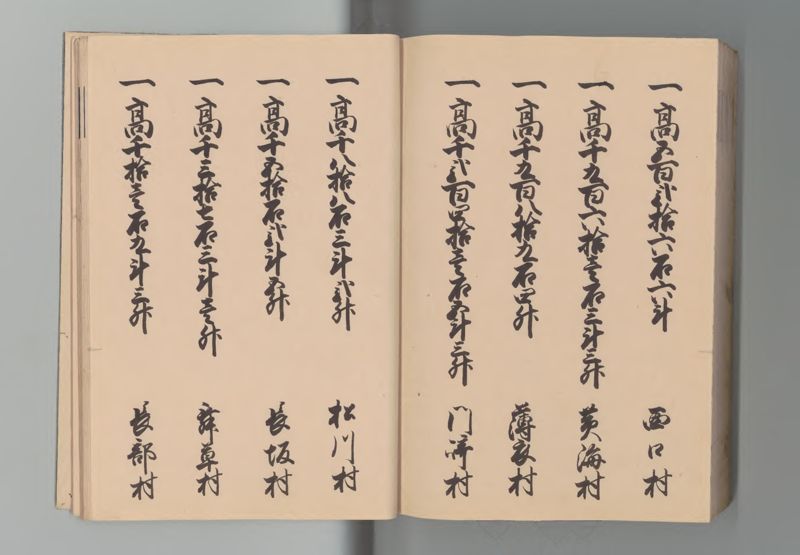 一高五百弐拾六石六斗 西口村
一高千九百六拾壱石三斗三升 黄海村
一高千九百八拾九石四升 薄衣村
一高千弐百四拾壱石五斗三升 門崎村
一高千八拾八石三斗弐升 松川村
一高千五拾石弐斗五升 長坂村
一高千三拾七石三斗壱升 舞草村
一高千拾壱石九斗三升 長部村